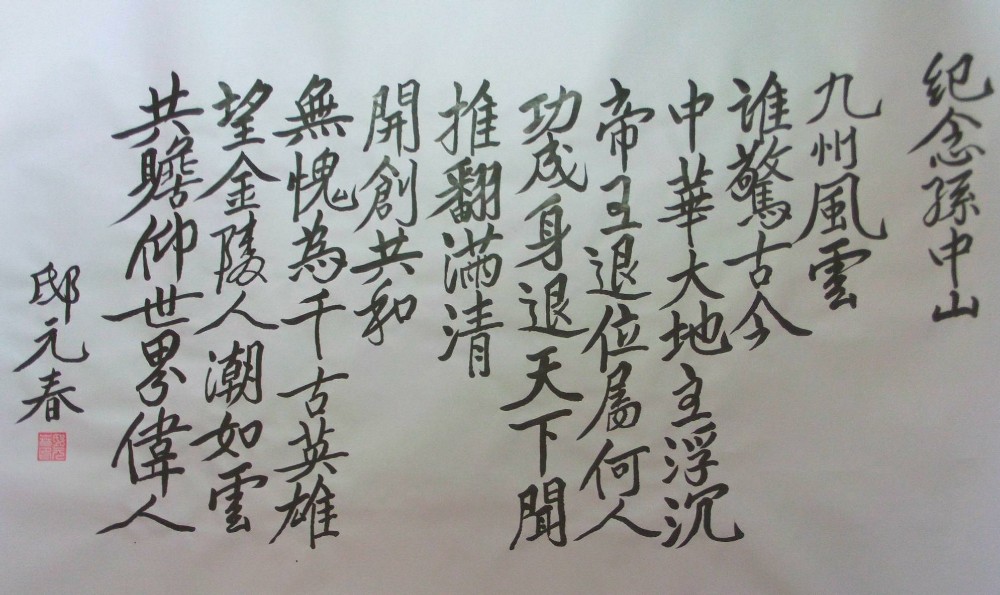 纪念孫中山
九州風雲
谁驚古今
中華大地主浮沉
帝王退位属何人
功成身退天下聞
推翻满清
開創共和
無愧為千古英雄
望金陵人潮如雲
共瞻仰世界偉人
邸元春